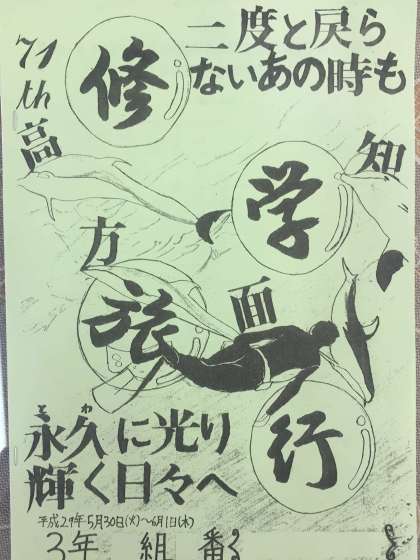 71th
二度と戻ら
ないあの時も
修
学
旅
行
高知
方面
永久に光り
とわ
輝く日々へ
平成29年5月30日(火)~6月1日(木)
3年 組 番